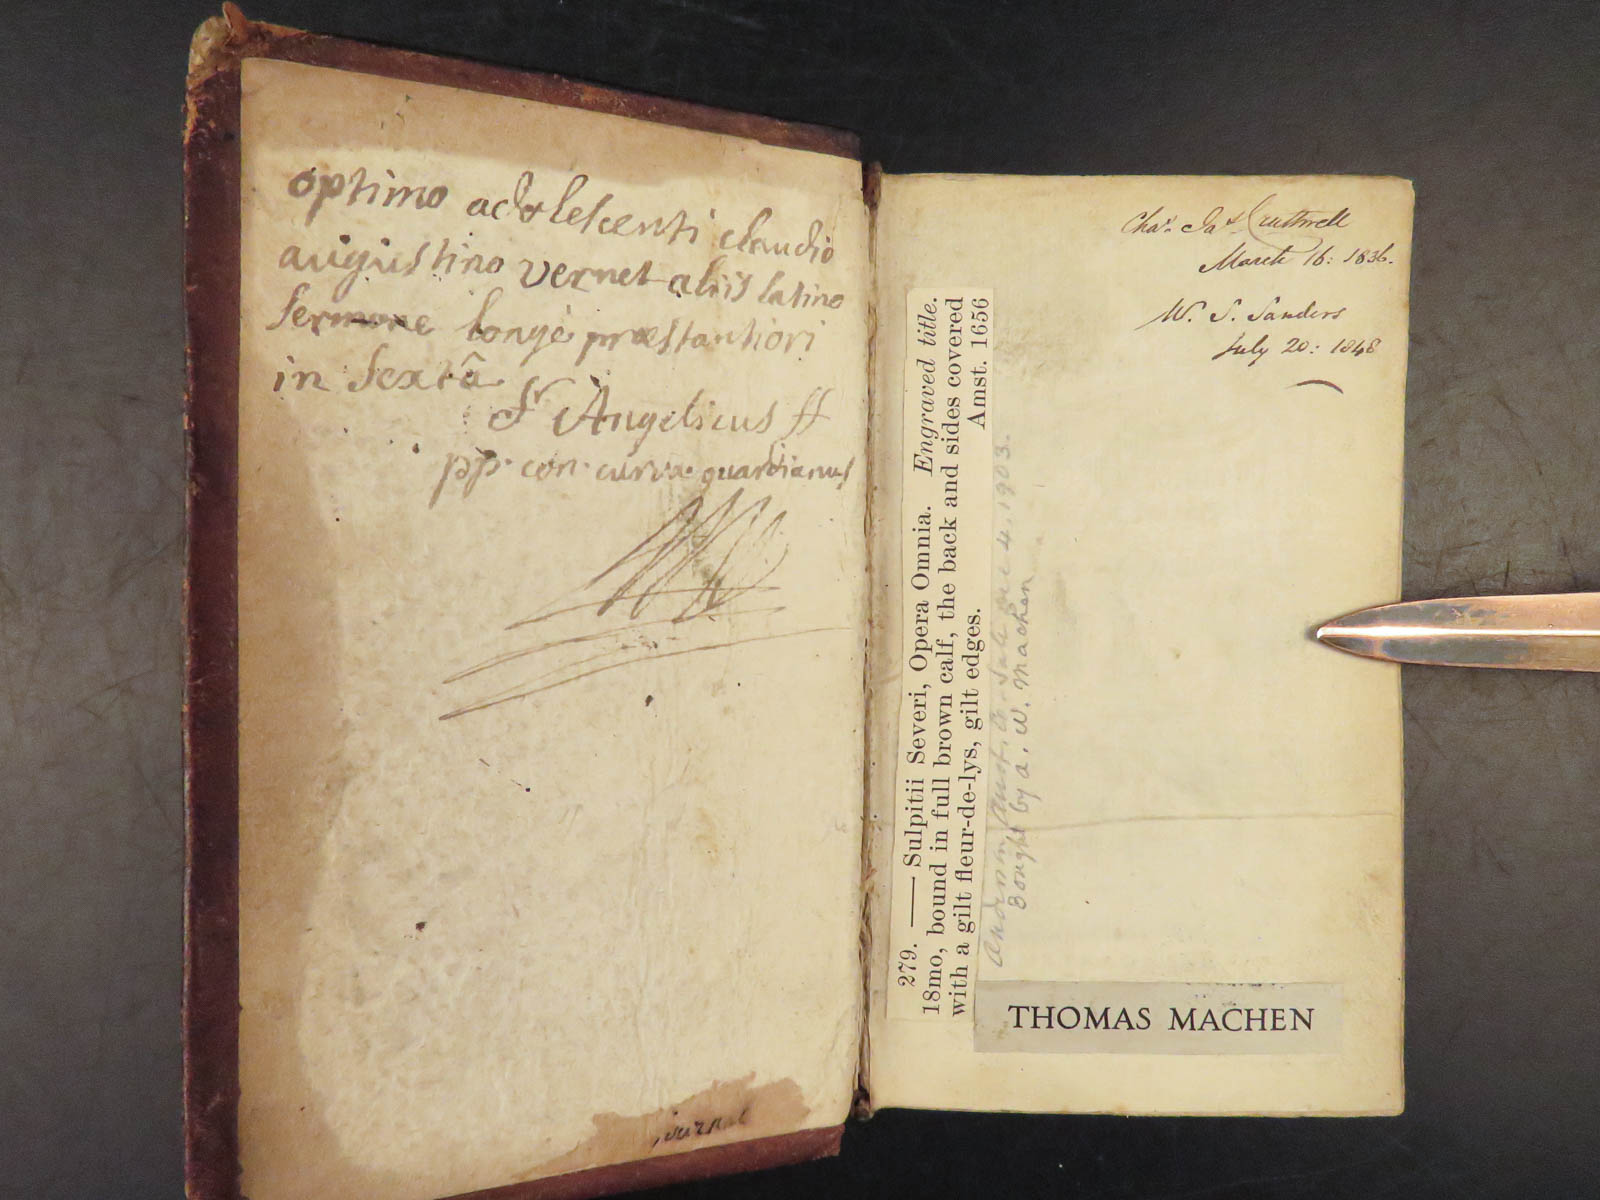 optimo adolescenti claudio
augustino vernet aliis latino
sermone longè præstantiori
in sextâ
fr Angelicus ff
pp. con. curvæ guardianus
Chas. Jas. Cruttwell
March 16: 1836.
W. S. Sanders
July 20: 1848
279. —— Sulpitii Severi, Opera Omnia. Engraved title.
18mo, bound in full brown calf, the back and sides covered
with a gilt fleur-de-lys, gilt edges. Amst. 1656
Anderson Auct. Co. Sale 4. 1903.
Bought by A. W. Machen
THOMAS MACHEN